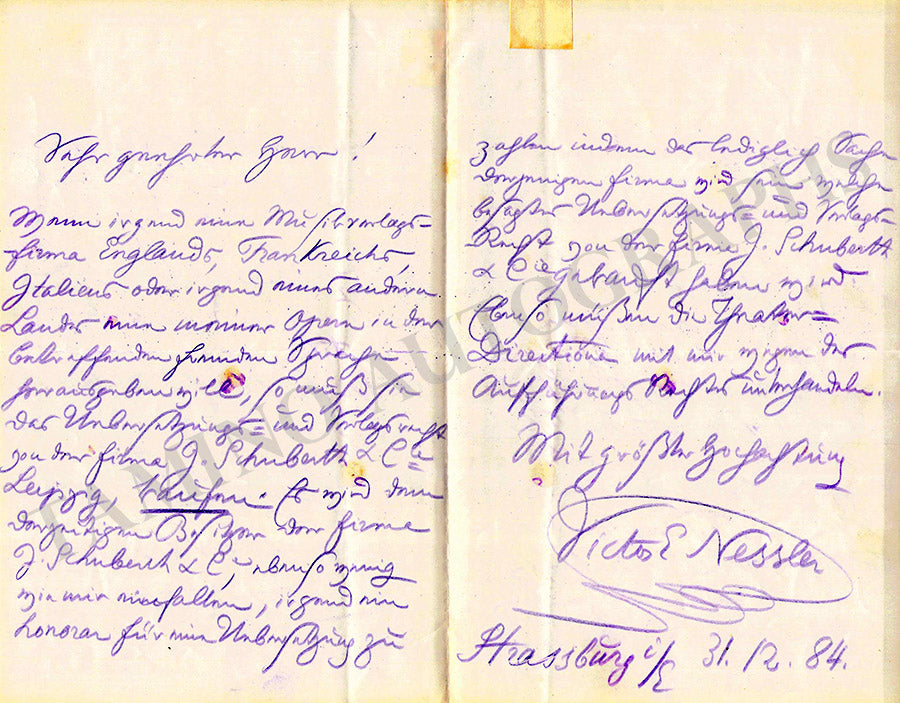 Sehr geehrter Herr!
Wenn irgend eine Musikverlags-
firma Englands, Frankreichs,
Italiens oder irgend eines andern
Landes eine meiner Opern in der
betreffenden fremden Sprache
herausgeben will, so muß sie
das Uebersetzungs= und Verlagsrecht
von der Firma J. Schuberth & Cie
Leipzig, kaufen. Es wird dem
derzeitigen Besitzer der Firma
J. Schuberth & Cie, ebenso wenig
wie mir einfallen, irgend ein
Honorar für eine Uebersetzung zu
zahlen indem das lediglich Sache
derjenigen Firma wird sein welche
besagtes Uebersetzungs= und Verlags-
Recht von der Firma J. Schuberth
& Cie gekauft haben wird.
Ebenso müßen die Theater=
Directionen mit mir wegen des
Aufführungs Rechtes unterhandeln.
Mit größter Hochachtung
Victor E Nessler
Strassburg i/E 31. 12. 84.
TAMINO AUTOGRAPHS